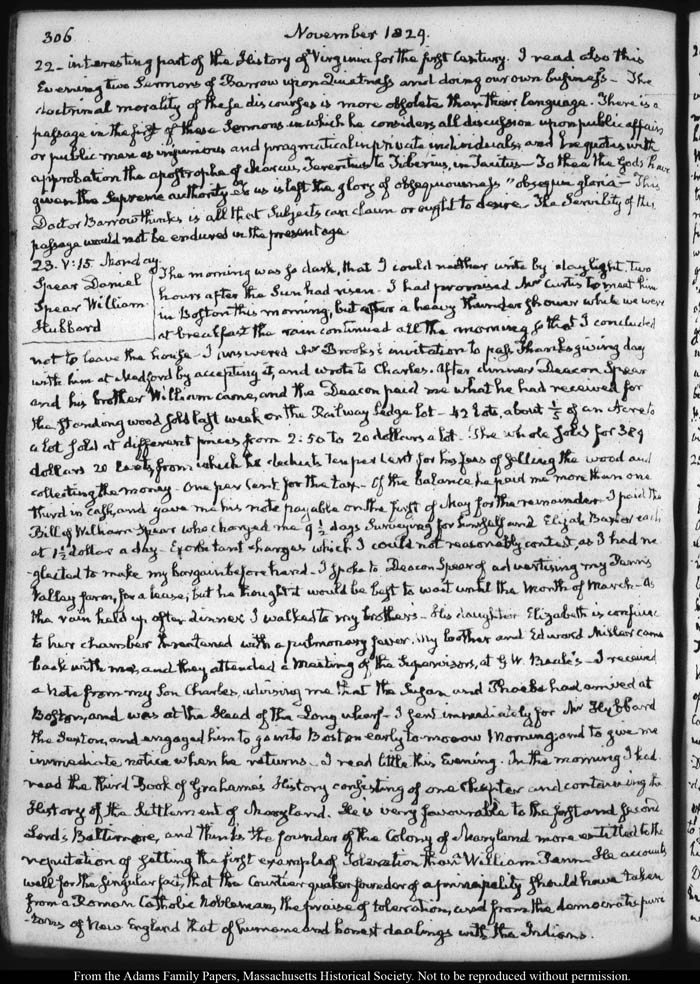 306
November 1829.
22_ interesting part of the History of Virginia for the first Century. I read also this
Evening two Sermons of Barrow upon Quietness and doing our own business_ The
doctrinal morality of these discourses is more obsolete than their language. There is a
passage in the first of these Sermons in which he considers all discussion upon public affairs
or public men as injurious and pragmatical in private individuals, and he quotes with
approbation the apostrophe of Marcus Terentius to Tiberius, in Tacitus_ To thee the Gods have
given the Supreme authority_ to us is left the glory of obsequiousness "obsequii gloria_ This
Doctor Barrow thinks is all that Subjects can claim or ought to desire_ The Servility of this
passage would not be endured in the present age.
23. V:15. Monday.
Spear Daniel
Spear William
Hubbard
The morning was so dark, that I could neither write by daylight, two
hours after the Sun had risen. I had promised Mr Curtis to meet him
in Boston this morning, but after a heavy thunder shower while we were
at breakfast the rain continued all the morning, so that I concluded
not to leave the house_ I answered Mr Brooks's invitation to pass Thanksgiving day
with him at Medford by accepting it, and wrote to Charles. After dinner Deacon Spear
and his brother William came, and the Deacon paid me what he had received for
the standing wood sold last week on the Railway Ledge lot_ 42 Lots, about 1/5 of an Acre to
a lot sold at different prices from 2:50 to 20 dollars a lot_ The whole sold for 389
dollars 20 Cents, from which he deducts ten per Cent for his fees of selling the wood and
collecting the money_ One per Cent for the tax_ Of the balance, he paid me more than one
third in cash, and gave me his note payable on the first of May for the remainder_ I paid the
Bill of William Spear who charged me 9 1/2 days Surveying for himself and Elijah Baxter each
at 1 1/2 dollar a day_ Exorbitant charges which I could not reasonably contest, as I had ne-
glected to make my bargain before hand_ I spoke to Deacon Spear of advertising my Penns
Valley farm, for a lease; but he thought it would be best to wait until the Month of March_ As
the rain held up after dinner I walked to my brother's_ His daughter Elizabeth is confined
to her chamber threatened with a pulmonary fever. My brother and Edward Miller came
back with me, and they attended a meeting of the Supervisors, at G. W. Beale's_ I received
a Note from my Son Charles, advising me that the Susan and Phoebe had arrived at
Boston, and was at the Head of the Long wharf_ I sent immediately for Mr Hubbard
the Sexton, and engaged him to go into Boston early to-morrow Morning, and to give me
immediate notice when he returns_ I read little this Evening. In the morning I had
read the third Book of Grahame's History consisting of one Chapter and containing the
History of the Settlement of Maryland. He is very favourable to the first and second
Lords Baltimore, and thinks the founder of the Colony of Maryland more entitled to the
reputation of setting the first example of Toleration than William Penn_ He accounts
well for the singular fact, that the Courtier quaker founder of a principality should have taken
from a Roman Catholic Nobleman, the praise of toleration, and from the democratic puri-
tans of New England that of humane and honest dealings with the Indians.
From the Adams Family Papers, Massachusetts Historical Society. Not to be reproduced without permission.